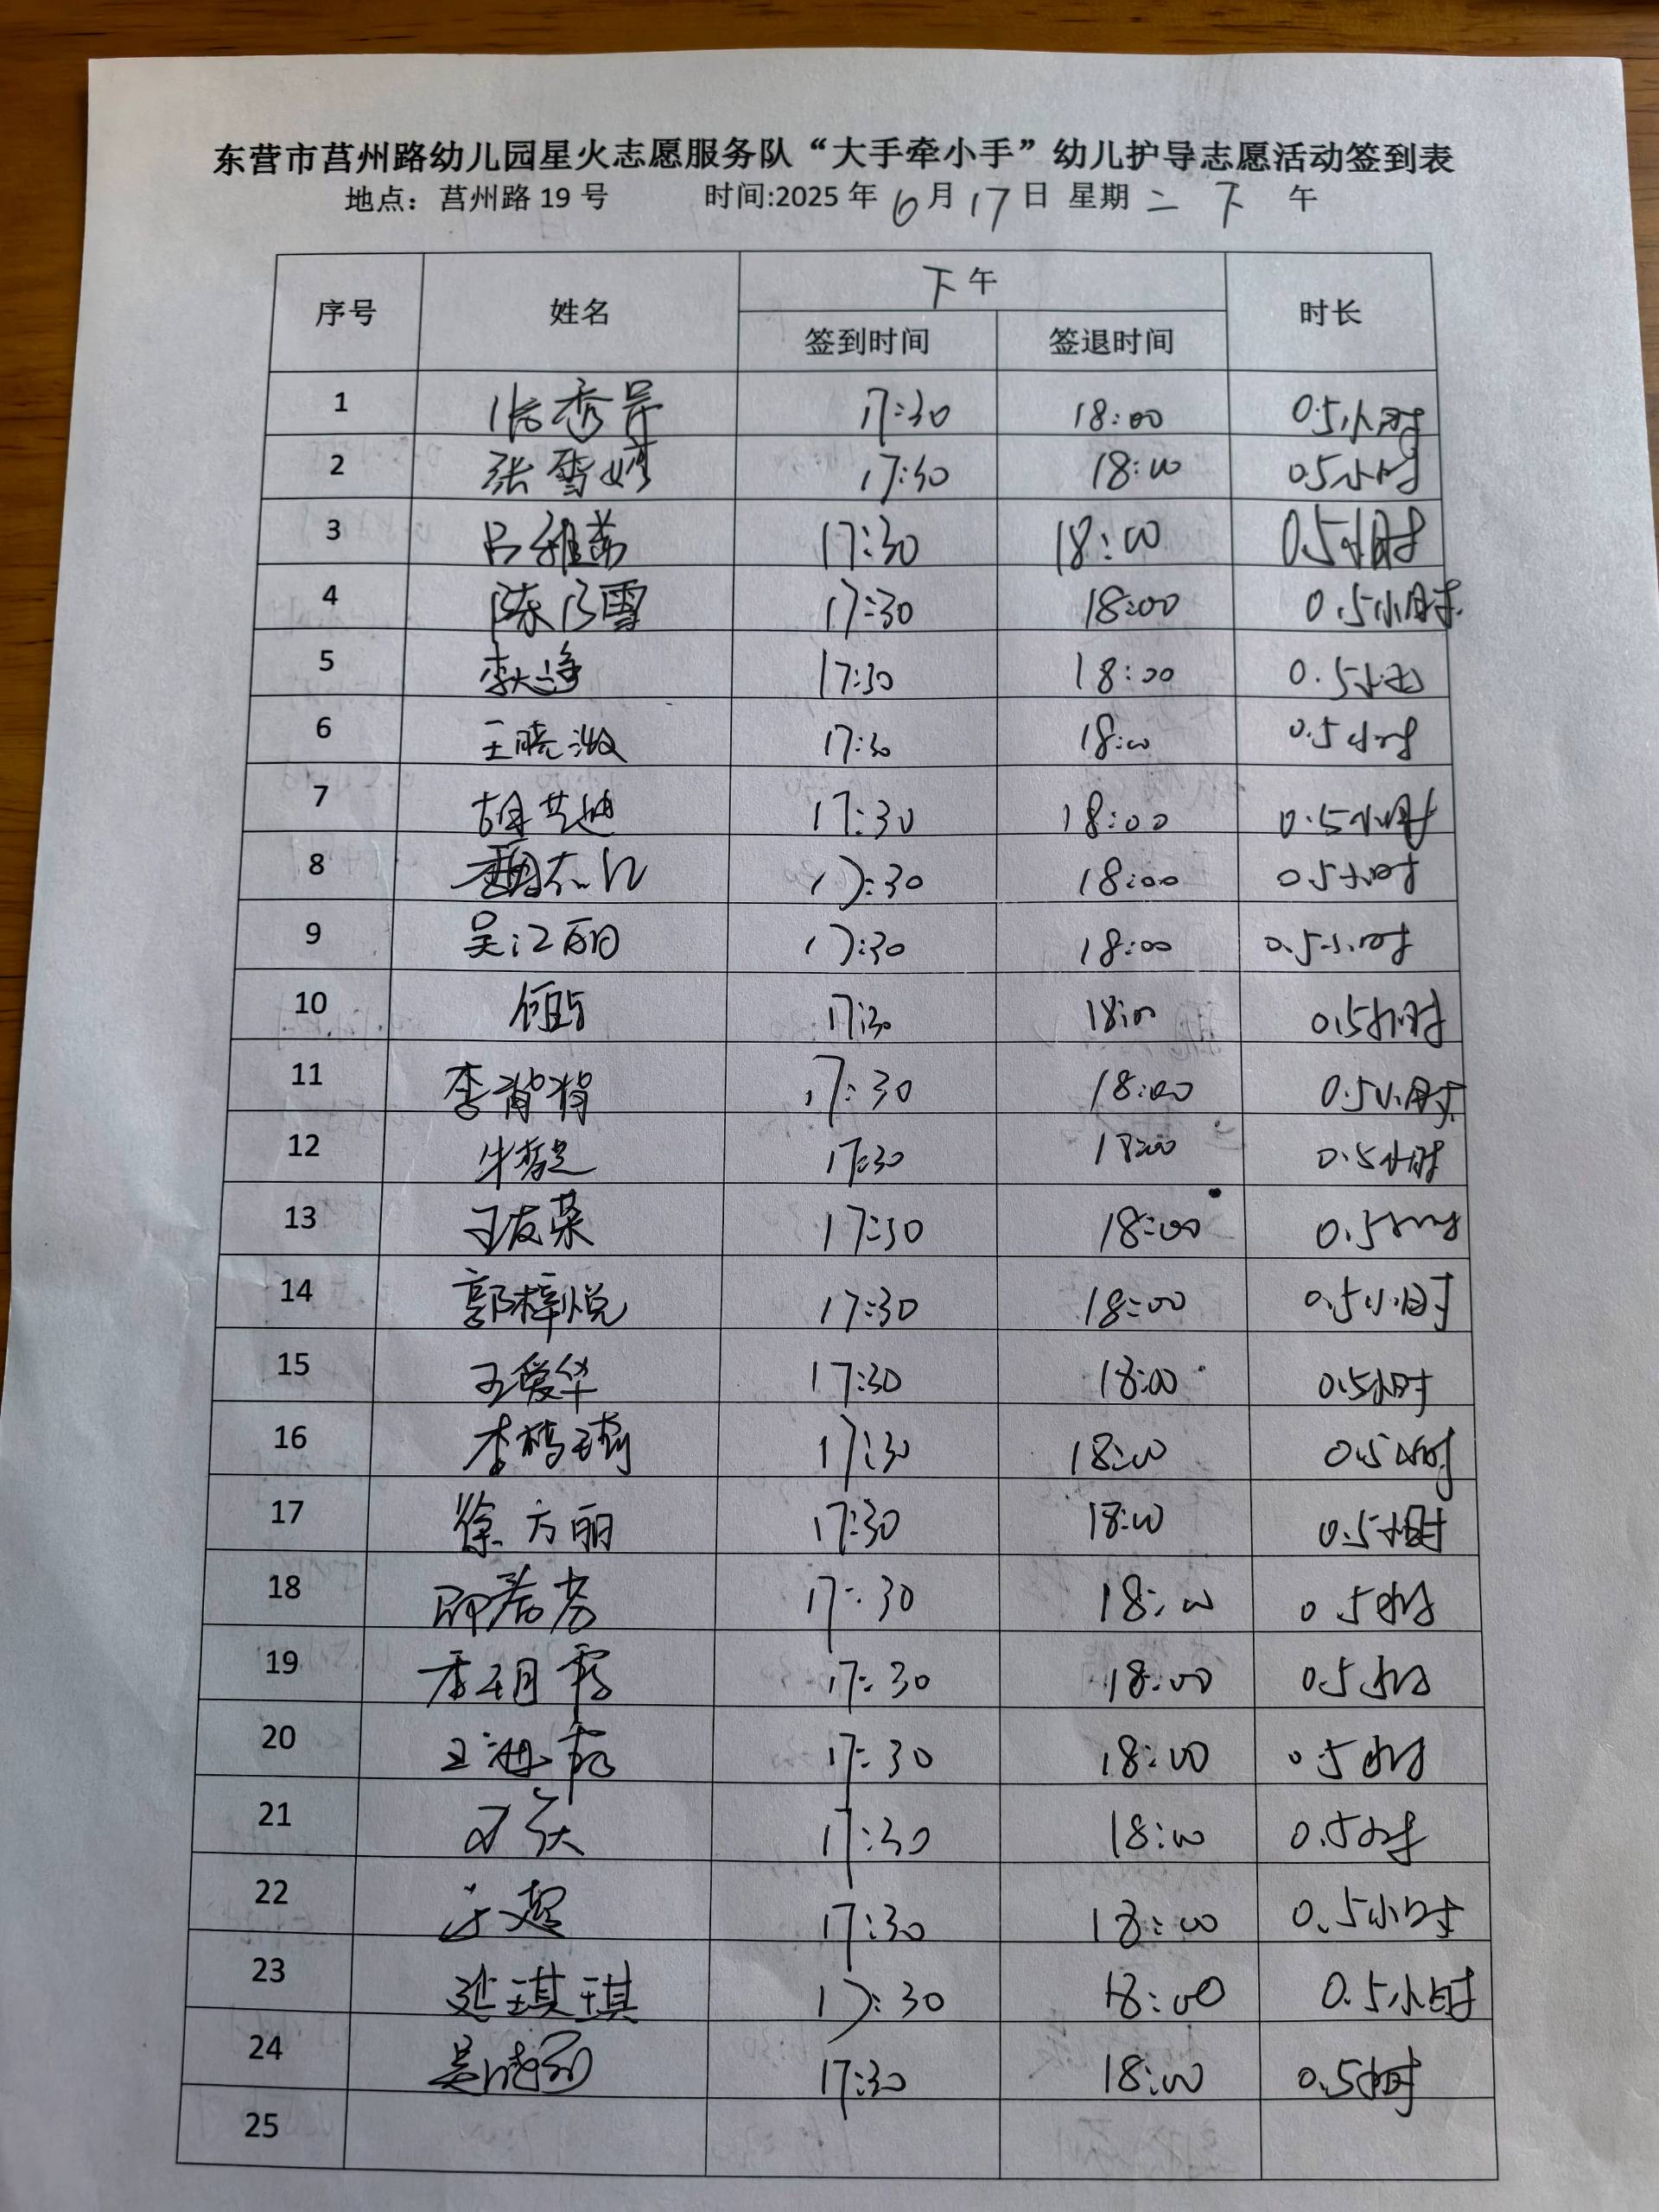 东营市莒州路幼儿园星火志愿服务队“大手牵小手”幼儿护导志愿活动签到表
地点：莒州路 19 号 时间:2025 年 6 月 17 日 星期 二 下 午
序号 姓名 下午 时长
签到时间 签退时间
1 张秀芹 17:30 18:00 0.5小时
2 张雪婷 17:30 18:00 0.5小时
3 吕雅茹 17:30 18:00 0.5小时
4 陈乃雪 17:30 18:00 0.5小时
5 17:30 18:00 0.5小时
6 王晓溦 17:30 18:00 0.5小时
7 胡艺迪 17:30 18:00 0.5小时
8 17:30 18:00 0.5小时
9 吴江丽 17:30 18:00 0.5小时
10 17:30 18:00 0.5小时
11 李肖娟 17:30 18:00 0.5小时
12 17:30 18:00 0.5小时
13 王友荣 17:30 18:00 0.5小时
14 郭梓悦 17:30 18:00 0.5小时
15 王爱华 17:30 18:00 0.5小时
16 17:30 18:00 0.5小时
17 徐方丽 17:30 18:00 0.5小时
18 17:30 18:00 0.5小时
19 李明霞 17:30 18:00 0.5小时
20 17:30 18:00 0.5小时
21 17:30 18:00 0.5小时
22 17:30 18:00 0.5小时
23 延琪琪 17:30 18:00 0.5小时
24 17:30 18:00 0.5小时
25